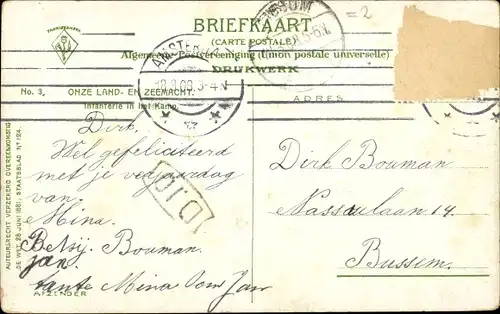 BRIEFKAART
(CARTE POSTALE)
Algemeene Postvereeniging (Union postale universelle)
DRUKWERK
No. 3. ONZE LAND- EN ZEEMACHT.
Infanterie in het Kamp.
ADRES
AMSTERDAM
3-4N
BUSSUM
=2
Dirk,
Wel gefeliciteerd
met je verjaardag
van.
Mina.
Betsij. Bouman.
Jan.
tante Mina Oom Jan
AFZENDER
DJG
Dirk Bouman
Nassaulaan 14.
Bussem.
AUTEURSRECHT VERZEKERD OVEREENKOMSTIG
DE WET 28 JUNI 1881, STAATSBLAD No 124.